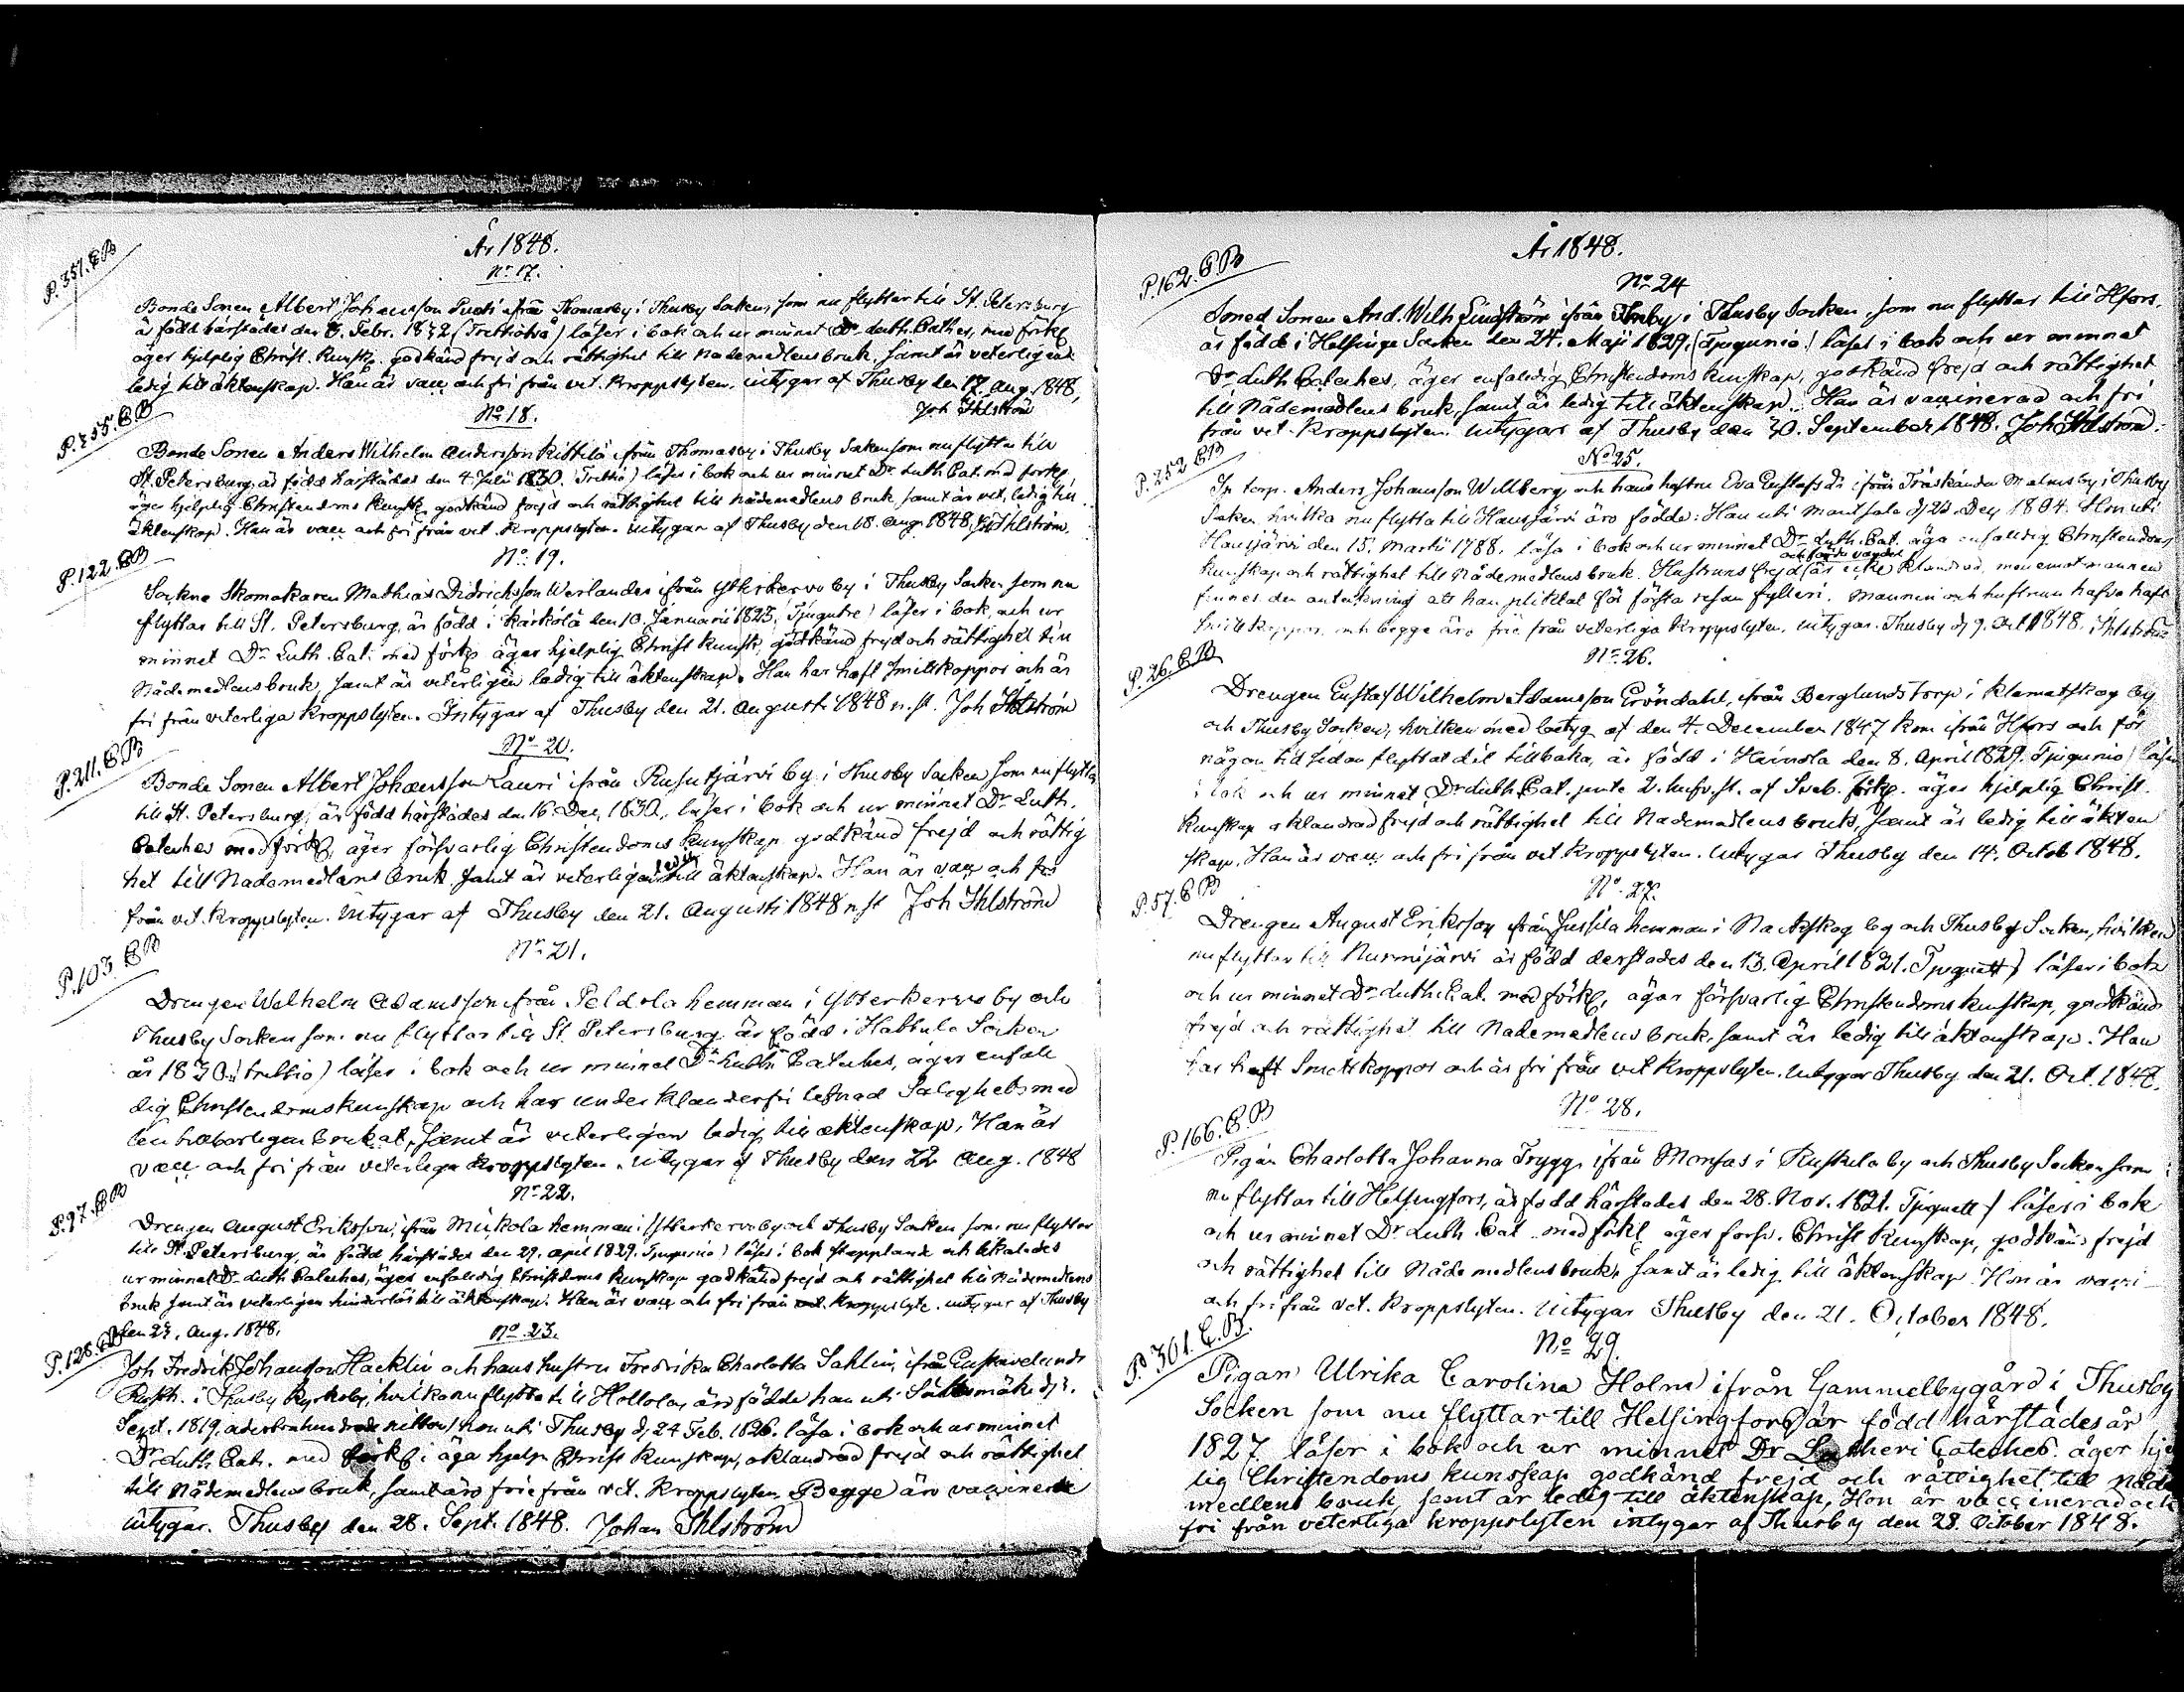 År 1848.
No 17.
P. 351. C B
Bonde Sonen Albert Johansson ifrån Thomasby i Thusby Socken, som nu flyttar till St. Petersburg
är född härstädes den 8. Febr. 1832 (Trettiotvå) läser i bok och ur minnet Dr. Luth. Cathes, med förkl
äger hjelplig Christ. kunsk. godkänd frejd och rättighet till Nademedlens bruk, samt är veterligen
ledig till äktenskap. Han är vacc och fri från vet. kroppslyten. intygar af Thusby den 17 aug. 1848,
Joh Ihlström
No 18.
P. 355. C B
Bonde Sonen Anders Wilhelm Andersson Kittilä ifrån Thomasby i Thusby Socken som nu flyttar till
St. Petersburg, är född härstädes den 4. Julii 1830. (Trettio) läser i bok och ur minnet Dr Luth Cat. med förkl.
äger hjelplig Christendoms kunsk. godkänd frejd och rättighet till nådemedlens bruk samt är vet. ledig till
äktenskap. Han är vacc och fri från vet. kroppslyten. intygar af Thusby den 18. aug. 1848, J. Ihlström.
No 19.
P. 122. C B
Sockne Skomakaren Mathias Didricksson Werlander ifrån Ytterkervo by i Thusby Socken som nu
flyttar till St. Petersburg, är född i Kärkölä den 10. Januarii 1823. Tjugutre) läser i bok, och ur
minnet Dr. Luth. Cat. med förkl. äger hjelplig Christ kunsk, godkänd frejd och rättighet till
Nådemedlens bruk, samt är veterligen ledig till äktenskap. Han har haft smittkoppor och är
fri från veterliga kroppslyten. Intygar af Thusby den 21. Augusti 1848 n. st. Joh Ihlström
No 20.
P. 211. C B
Bonde Sonen Albert Johansson Lauri ifrån Rusutjärvi by i Thusby Socken som nu flyttar
till St. Petersburg, är född härstädes den 16. Dec, 1830, läser i bok och ur minnet Dr. Luth.
Cateches med förkl, äger försvarlig Christendoms kunskap godkänd frejd och rättig
het till Nademedlens bruk samt är veterligen ledig till äktenskap. Han är vacc och fri
från vet. kroppslyten. intygar af Thusby den 21. Augusti 1848 n. st Joh Ihlström
No 21.
P. 103. C B
Drengen Wilhelm Adamsson ifrån Peldola hemman i Ytterkervo by och
Thusby Socken som nu flyttar till St Petersburg är född i Hattula Socken
år 1830. (trettio) läser i bok och ur minnet Dr Luth. Cateches, äger enfall
dig Christendomskunskap och har under klanderfri lefnad Salighetsmed
len behörligen brukat, samt är veterligen ledig till äktenskap, Han är
vacc och fri från veterliga kroppslyten. intygar af Thusby den 22 Aug. 1848
No 22.
P. 97. C B
Drengen August Eriksson, ifrån Mickola hemman i Ytterkervo by och Thusby Socken som nu flyttar
till St Petersburg, är född härstädes den 27. April 1829. Tjugunio) läser i bok stapplande och likaledes
ur minnet Dr Luth Cateches, äger enfaldig Christdoms kunskap godkänd frejd och rättighet till Nådemedlens
bruk samt är veterligen hinderlös till äktenskap. Han är vacc och fri från vet. kroppslyte. intygar af Thusby
den 23. Aug. 1848.
No 23.
P. 128. C B
Joh Fredrik Johansson Hacklin och hans hustru Fredrika Charlotta Sahlin, ifrån Gustavelunds
Rusth. i Thusby Kyrkoby, hvilka nu flytta till Hollola äro födde han uti Sääksmäki d. 3.
Sept. 1819. adertonhundrade nitton) hon uti Thusby d, 24 Feb. 1826. läsa i bok och ur minnet
Dr Luth. Cat. med förkl. äga hjelp. Christ kunskap, oklandrad frejd och rättighet
till Nådemedlens bruk, samt äro frie från vet. kroppslyten Begge äro vaccinerade
intygar. Thusby den 28. Sept. 1848. Johan Ihlström
År 1848.
No 24
P. 162. C. B
Smed Sonen And. Wilh Lindström ifrån by i Thusby Socken, som nu flyttar till Hfors.
är född i Helsinge Socken den 24. Maji 1829, (Tjugunio) läser i bok och ur minnet
Dr Luth Cateches, äger enfaldig Christendoms kunskap, godkänd frejd och rättighet
till Nådemedlens bruk, samt är ledig till äktenskap. Han är vaccinerad och fri
från vet. kroppslyten. intygar af Thusby den 30. September 1848. Joh Ihlström.
No 25.
P. 252 C B
torp. Anders Johansson Willberg och hans hustru Eva Gustafsdr ifrån Träskända Malmsby i Thusby
Socken, hvilka nu flytta till Hausjärvi äro födde: Han uti Mäntsälä d. 21. Dec 1804. Hon uti
Hausjärvi den 15. Martii 1788. läsa i bok och ur minnet Dr. Luth. Cat. äga enfalldig Christendoms
kunskap och rättighet till Nådemedlens bruk. Hustruns frejd är icke klandrad, men emot mannen
finnes den anteckning att han pliktat för första resan fylleri. Mannen och hustrun hafva haft
smittkoppor och begge äro frie från veterliga kroppslyten. intygar. Thusby d, 9. Oct. 1848. Ihlström
No 26.
P. 26. C B
Drengen Gustaf Wilhelm Adamsson Gröndahl, ifrån Berglunds torp i Klamatskog by
och Thusby Socken, hvilken med betyg af den 4. December 1847 kom ifrån Hfors och för
någon tid sedan flyttat dit tillbaka, är född i Heinola den 8. April 1829. Tjugunio) läser
i bok och ur minnet Dr Luth Cat. jemte 2. hufv. st. af Sveb. förkl. äger hjelplig Christ.
kunskap oklandrad frejd och rättighet till Nademedlens bruk, samt är ledig till äkten
skap. Han är vacc och fri från vet. kroppslyten. intygar Thusby den 14. Octob 1848.
No 27.
P. 57. C B
Drengen August Eriksson ifrån Jussila hemman i Nackskog by och Thusby Socken, hvilken
nu flyttar till Nurmijärvi är född derstädes den 13. April 1821. Tjuguett) läser i bok
och ur minnet Dr Luth. Cat. med förkl, äger försvarlig Christendoms kunskap, godkänd
frejd och rättighet till Nademedlens bruk, samt är ledig till äktenskap. Han
har haft Smittkoppor och är fri från vet kroppslyten. intygar Thusby den 21. Oct. 1848.
No 28.
P. 166. C. B
Pigan Charlotta Johanna Trygg, ifrån Monsas i Ruskela by och Thusby Socken som
nu flyttar till Helsingfors, är född härstädes den 28. Nov. 1821. Tjuguett) läser i bok
och ur minnet Dr Luth. Cat. med förkl. äger försv. Christ kunskap, godkänd frejd
och rättighet till Nåde medlens bruk, samt är ledig till äktenskap. Hon är vacci
och fri från vet. kroppslyten. intygar Thusby den 21. October 1848.
No 29.
P. 301. C. B.
Pigan Ulrika Carolina Holm ifrån Gammelbygård i Thusby
Socken som nu flyttar till Helsingfors är född härstädes år
1827 läser i bok och ur minnet Dr Lutheri Cateches. äger hje
lig Christendoms kunskap godkänd frejd och rättighet till nåde
medlens bruk, samt är ledig till äktenskap, Hon är vaccinerad och
fri från veterliga kroppslyten intygar af Thusby den 28. October 1848.